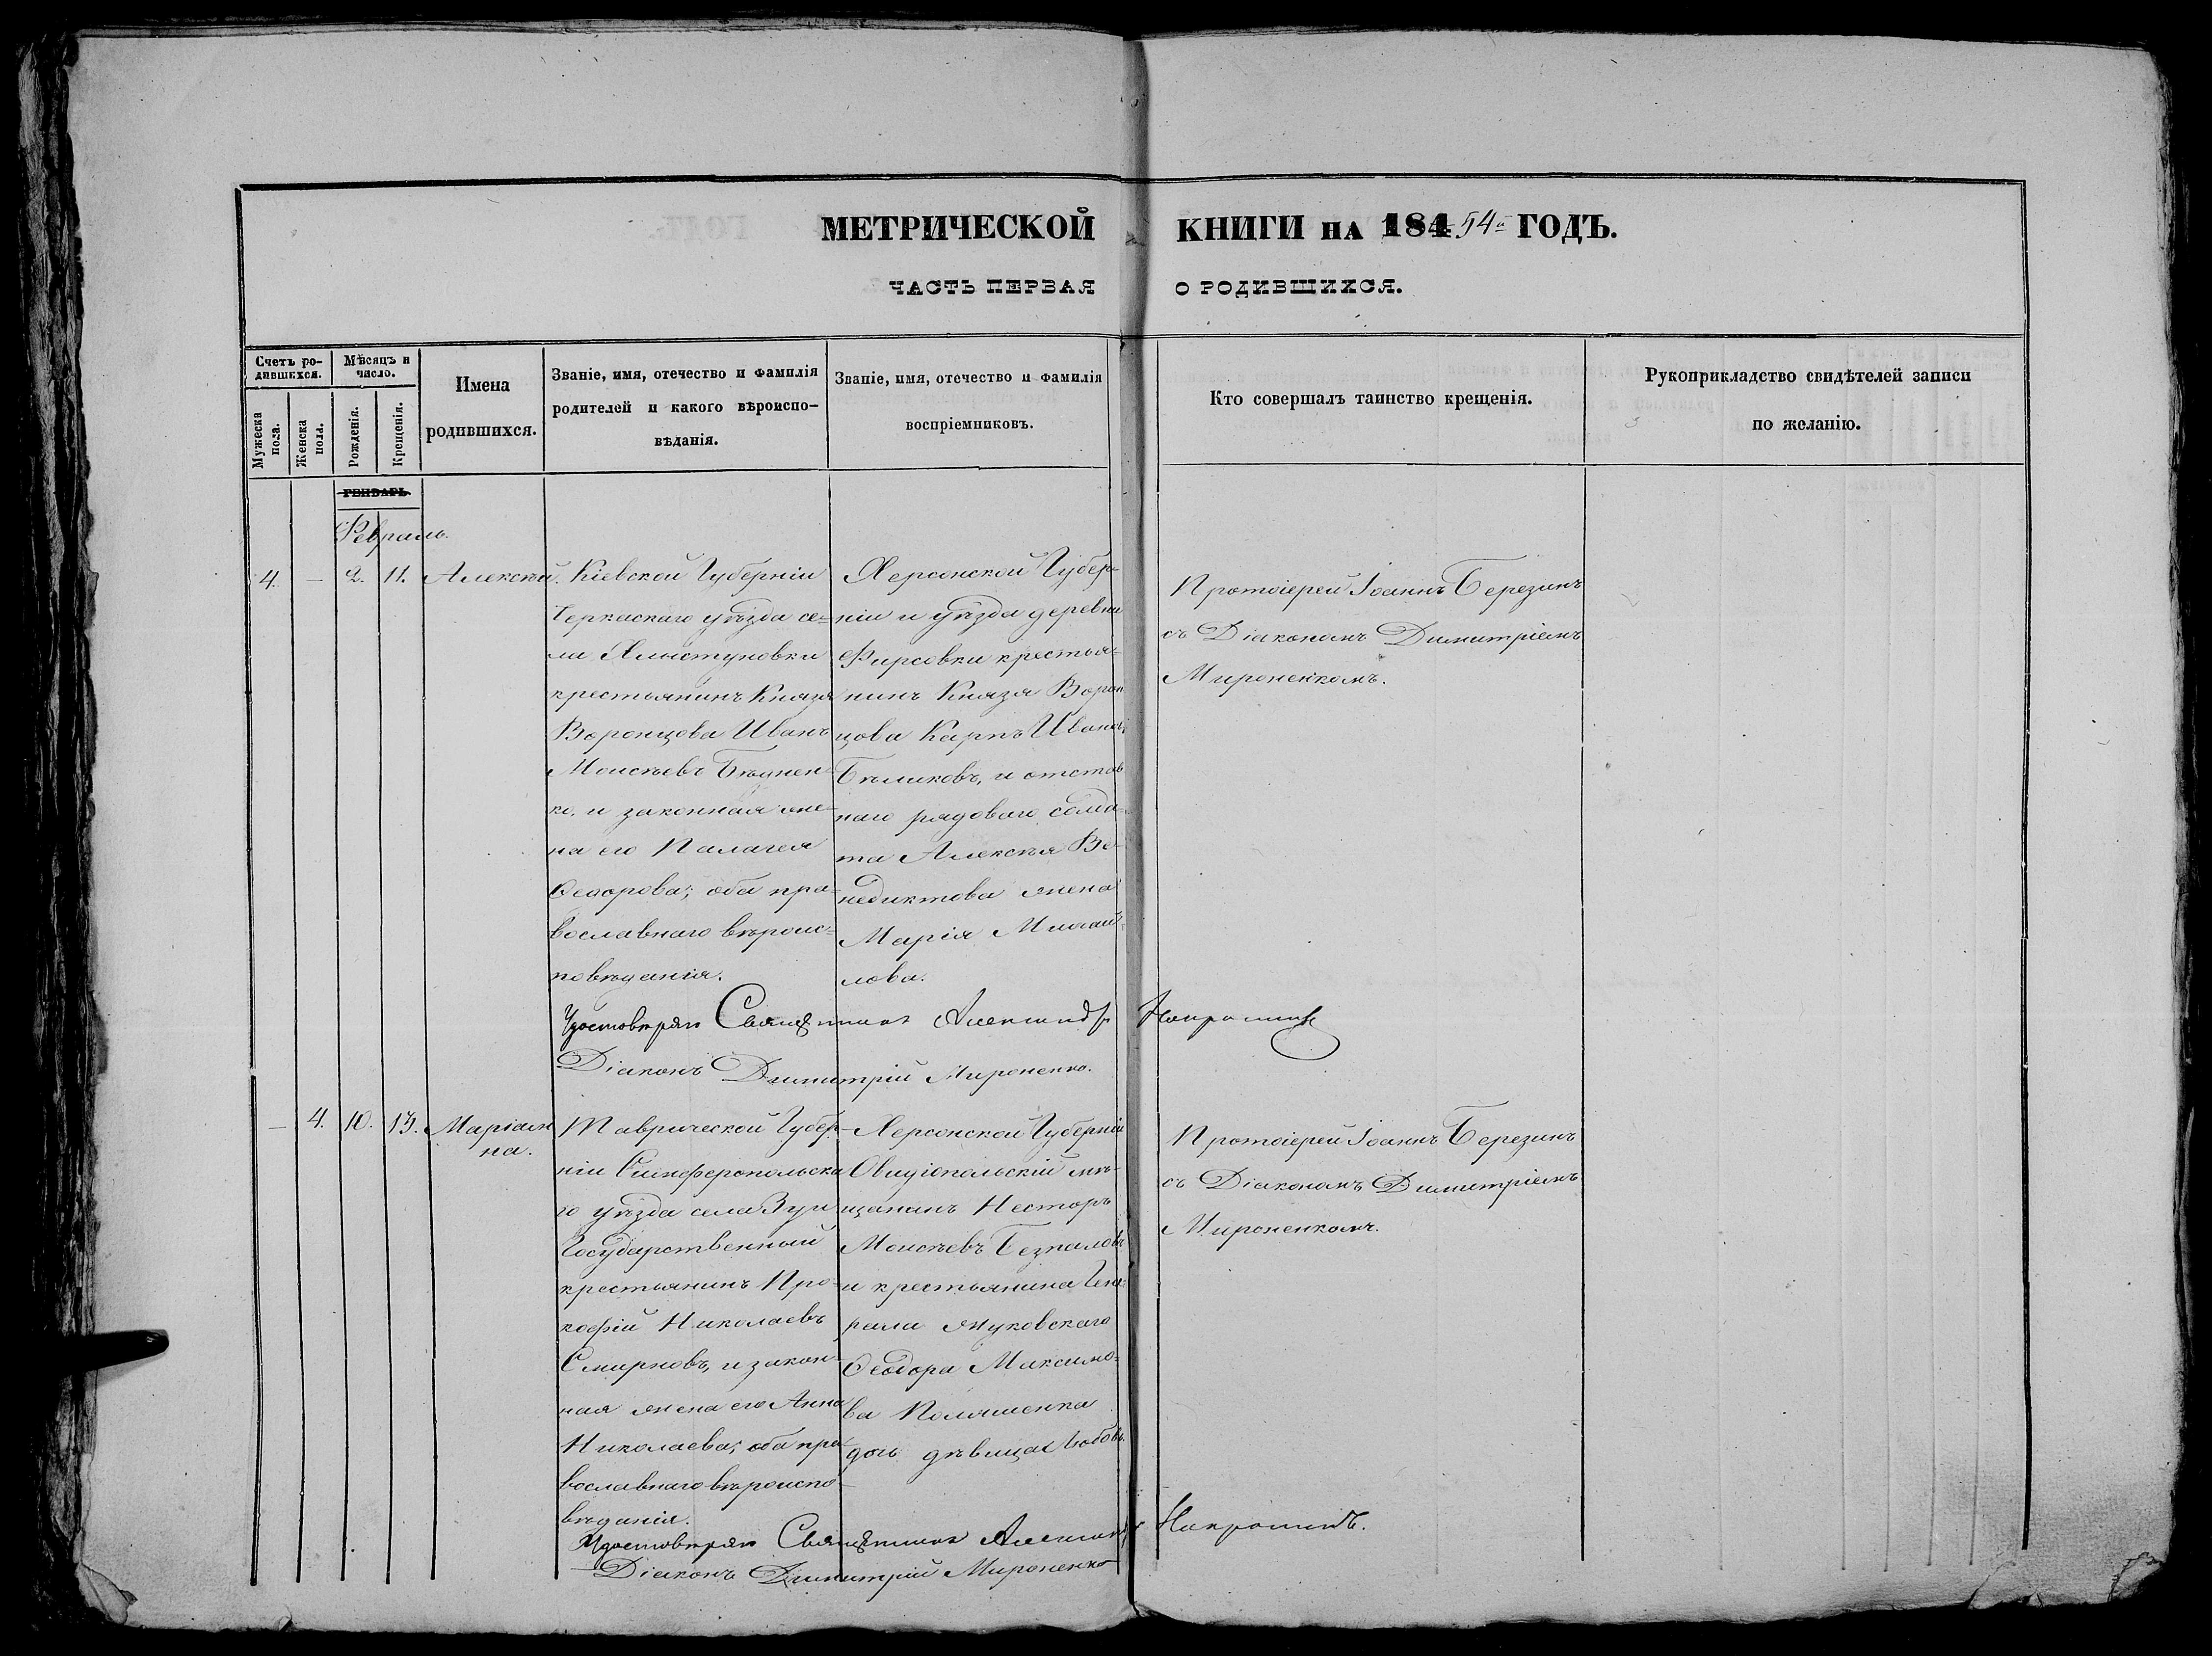 МЕТРИЧЕСКОЙ КНИГИ НА 184 54й ГОДЪ.
ЧАСТЬ ПЕРВАЯ О РОДИВШИХСЯ.
Счетъ ро-
дившихся.
Мужеска
пола.
Женска
пола.
Мѣсяцъ и
число.
Рожденія.
Крещенія.
Имена
родившихся.
Званіе, имя, отечество и фамилія
родителей и какого вѣроиспо-
вѣданія.
Званіе, имя, отечество и фамилія
воспріемниковъ.
Кто совершалъ таинство крещенія.
Рукоприкладство свидѣтелей записи
по желанію.
ГЕНВАРЬ
Февраль.
4. — 2. 11. Алексѣй.
Кіевской Губерніи
Черкаскаго уѣзда се=
ла Хлыстуновки
крестьянинъ Князя
Воронцова Иванъ
Моисѣевъ Бѣднен-
ко, и законная же-
на его Палагея
Ѳеодорова; оба пра-
вославнаго вѣроис=
повѣданія.
Херсонской Губер-
ніи и уѣзда деревни
Фирсовки крестья-
нинъ Князя Ворон
цова Карпъ Ивановъ
Бѣликовъ, и отстав
наго рядоваго солда-
та Алексѣя Ве-
недиктова жена
Марія Михаи-
лова.
Протоіерей Іоаннъ Березинъ
съ Діакономъ Димитріемъ
Мироненкомъ.
Удостовѣряю Священникъ Александръ
Діаконъ Димитрій Мироненко.
— 4. 10. 13. Маріан
на.
Таврической Губер-
ніи Симферопольска
го уѣзда села Зуи
Государственный
крестьянинъ Про-
кофій Николаевъ
Смирновъ, и закон-
ная жена его Анна
Николаева; оба пра
вославнаго вѣроиспо-
вѣданія.
Херсонской Губерніи
Овидіопольскій мѣ-
щанинъ Несторъ
Моисѣевъ Безпаловъ
и крестьянина Гене-
рала Жуковскаго
Ѳеодора Максимо-
ва
дочь дѣвица Любовь.
Протоіерей Іоаннъ Березинъ
съ Діакономъ Димитріемъ
Мироненкомъ.
Удостовѣряю Священникъ Александръ
Діаконъ Димитрій Мироненко